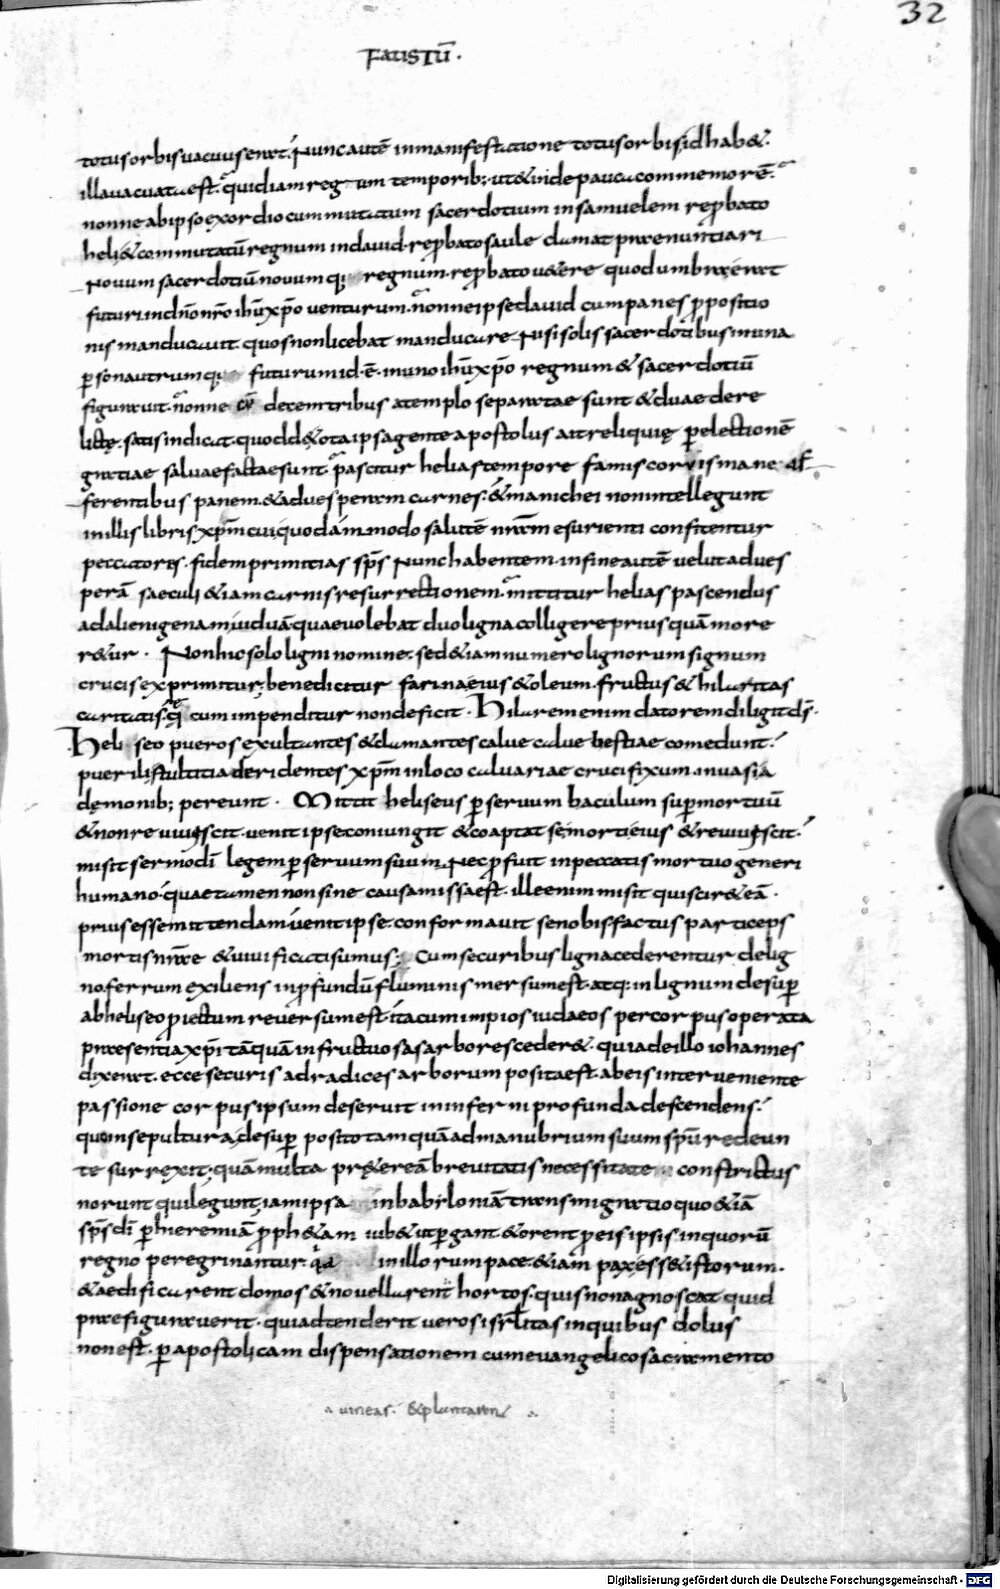 32
FAUSTŪ.
totus orbis uacuus erat. Nunc autē in manifestatione totus orbis id hab&.
illa uacuata est. quid iam regum temporib; ut & inde pauca commemorē.
nonne ab ipso exordio cummutatum sacerdotium in samuelem reprobato
heli & commutatū regnum in dauid reprobato saule clamat praenuntiari
Nouum sacerdotiū nouumq; regnum reprobato u&ere quod umbra erat
futuri in dn̄o nr̄o ih̄u xp̄o uenturum. nonne ipse dauid cum panes propositio
nis manducauit quos non licebat manducare Nisi solis sacerdotibus in una
persona utrumq; futurum id .ē. in uno ih̄u xp̄o regnum & sacerdotiū
figurauit. nonne cū decem tribus a templo separatae sunt & duae dere
lictę. satis indicat. quod d& ota ipsa gente apostolus ait reliquię per electionē
gratiae saluae factae sunt. pascitur helias tempore famis coruis mane af
ferentibus panem. & ad uesperam carnes. & manichei non intellegunt
in illis libris xp̄m cui quodam modo salutē nr̄am esurienti confitentur
peccatores. fidem primitias sp̄s Nunc habentem. in fine autē uelut ad ues
perā saeculi &iam carnis resurrectionem. mittitur helias pascendus
ad alienigenam uiduā quae uolebat duo ligna colligere priusquā more
r&ur. Non hic solo ligni nomine. sed &iam numero lignorum signum
crucis exprimitur. benedicitur farina eius & oleum. fructus & hilaritas
caritatis. quę cum impenditur non deficit. Hilarem enim datorem diligit ds̄.
Heliseo pueros exultantes & clamantes calue calue bestiae comedunt.
puerili stultitia deridentes xp̄m in loco caluariae crucifixum. inuasi a
dęmonib; pereunt. Mittit heliseus per seruum baculum super mortuū
& non reuiuiscit. uenit ipse. coniungit & coaptat se mortui eius & reuiuiscit.
misit sermo dī legem per seruum suum. Nec profuit in peccatis mortuo generi
humano. quae tamen non sine causa missa est. ille enim misit qui scir& eā.
prius esse mittendam. uenit ipse. conformauit se nobis factus particeps
mortis nr̄ae & uiuificati sumus. Cum securibus ligna cederentur de lig
no. ferrum exiliens in profundū fluminis mersum est. atq; in lignum desuper
ab heliseo proiectum reuersum est. ita cum impios iudaeos per corpus operata
praesentia xp̄i tāquā infructuosas arbores ceder&. quia de illo iohannes
dixerat. ecce securis ad radices arborum posita est. ab eis interueniente
passione corpus ipsum deseruit in inferni profunda descendens.
quo in sepultura desuper posito tamquā ad manubrium suum sp̄u redeun
te surrexit. quā multa pr&ereā breuitatis necessitate constrictus
norunt qui legunt. iam ipsa in babiloniā transmigratio quo &iā
sp̄s dī per hieremiā proph&am iub& ut pergant & orent pro eis ipsis in quorū
regno peregrinantur. quia in illorum pace. &iam pax ess& istorum.
& aedificarent domos & nouellarent hortos. quis non agnoscat quid
praefigurauerit. qui adtenderit ueros isrl̄itas in quibus dolus
non est. per apostolicam dispensationem cum euangelico sacramento
uineas. & plantaren
Digitalisierung gefördert durch die Deutsche Forschungsgemeinschaft - DFG